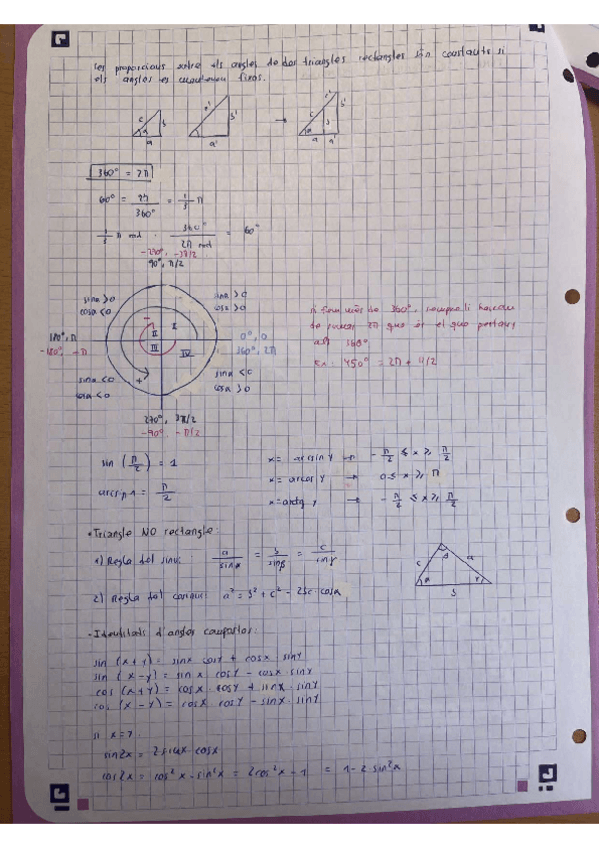 Les proporcions entre els angles de dos triangles rectangles són constants si
els angles es mantenen fixos.
c b a a
c' b' a'
→
c c' b b' a a a'
360° = 2π
60° = 2π / 360° = 1/3 π
1/3 π rad · 360° / 2π rad = 60°
-270°, -3π/2
90°, π/2
sinα > 0
cosα < 0
sinα > 0
cosα > 0
I
II
III
IV
-
+
180°, π
-180°, -π
0°, 0
360°, 2π
sinα < 0
cosα < 0
sinα < 0
cosα > 0
270°, 3π/2
-90°, -π/2
si fem més de 360°, sempre li haurem
de sumar 2π que és el que
als 360°
450° = 2π + π/2
sin (π/2) = 1
arcsin 1 = π/2
x = arcsin y → -π/2 ≤ x ≥ π/2
x = arcos y → 0 ≤ x ≥ π
x = arctg y → -π/2 ≤ x ≥ π/2
• Triangle NO rectangle:
1) Regla del sinus: a / sinα = b / sinβ = c / sinγ
2) Regla del cosinus: a² = b² + c² - 2bc · cosα
c β a α γ b
- Identitats d'angles compostos:
sin (x+y) = sinx · cosy + cosx · siny
sin (x-y) = sinx · cosy - cosx · siny
cos (x+y) = cosx · cosy + sinx · siny
cos (x-y) = cosx · cosy - sinx · siny
si x=y:
sin2x = 2 sinx · cosx
cos2x = cos²x - sin²x = 2cos²x - 1 = 1 - 2 · sin²x